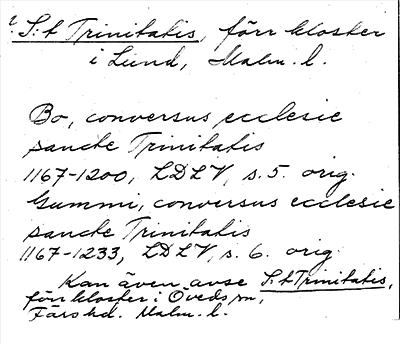 ? S:t Trinitatis, förr kloster
i Lund, Malm. l.
Bo, conversus ecclesie
sancte Trinitatis
1167-1200, LDLV, s. 5. orig.
Gummi, conversus ecclesie
sancte Trinitatis
1167-1233, LDLV, s. 6. orig.
Kan även avse S:t Trinitatis,
förr kloster i Öveds sn,
Färs hd. Malm. l.